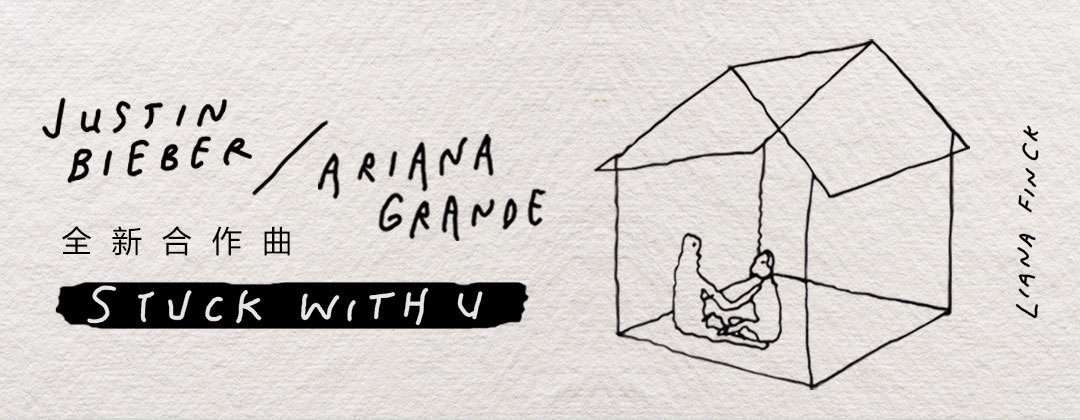 JUSTIN
BIEBER /
ARIANA
GRANDE
全新合作曲
STUCK WITH U
LIANA FINCK